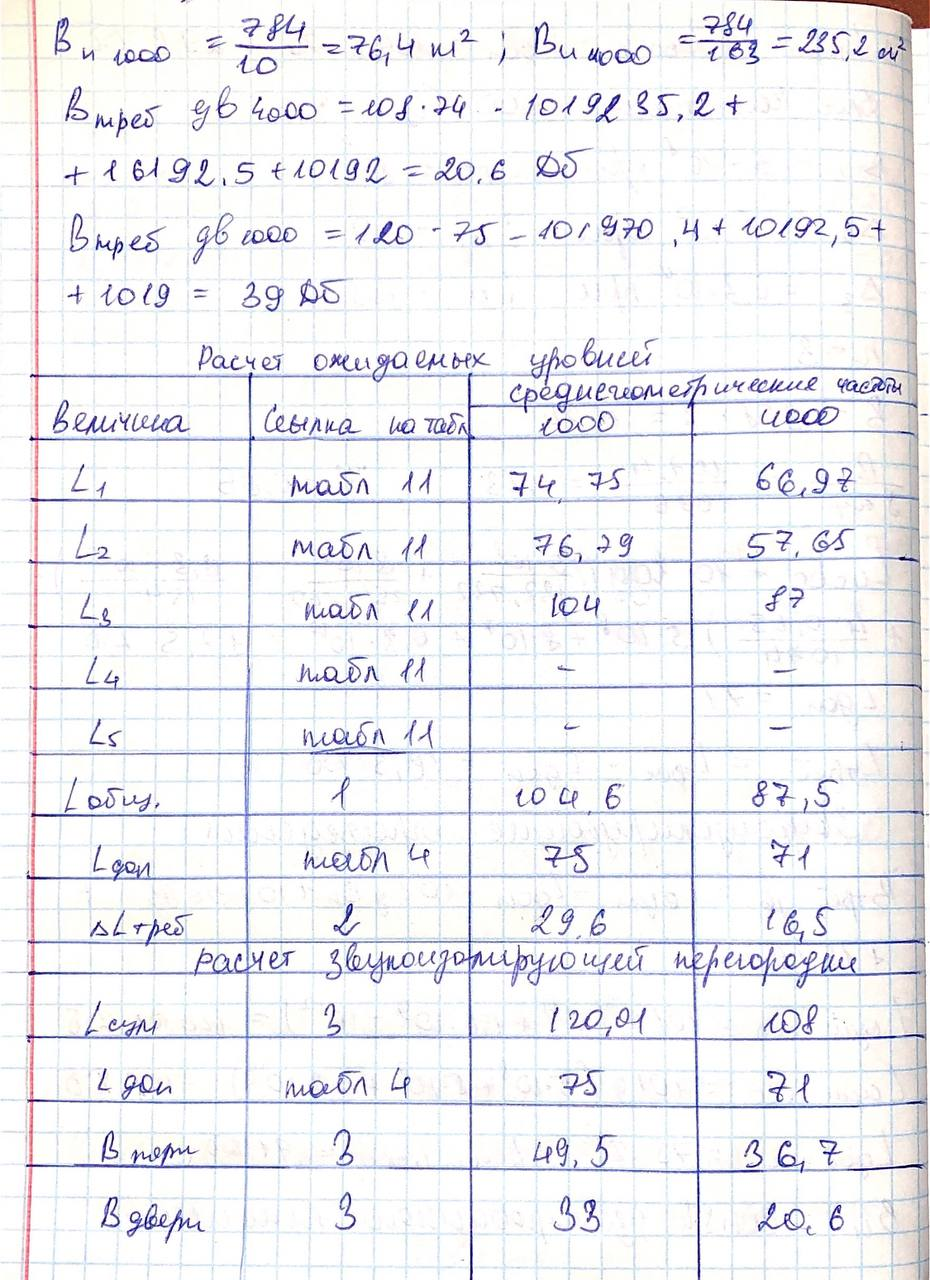 В и 1000 = 784/10 = 76,4 м² ; В и 4000 = 784/103 = 235,2 см²
В треб дв 4000 = 108 · 74 - 1019235,2 +
+ 16192,5 + 10192 = 20,6 Дб
В треб дв 1000 = 120 - 75 - 101970,4 + 10192,5 +
+ 1019 = 39 Дб
Расчет ожидаемых уровней
Величина Ссылка на табл среднегеометрические частоты
1000 4000
L1 табл 11 74,75 66,97
L2 табл 11 76,79 57,65
L3 табл 11 104 87
L4 табл 11 – –
L5 табл 11 – –
L общ. 1 104,6 87,5
L доп табл 4 75 71
ΔL треб 2 29,6 16,5
Расчет звукоизолирующей перегородки
L сум 3 120,01 108
L доп табл 4 75 71
В пер 3 49,5 36,7
В двери 3 33 20,6